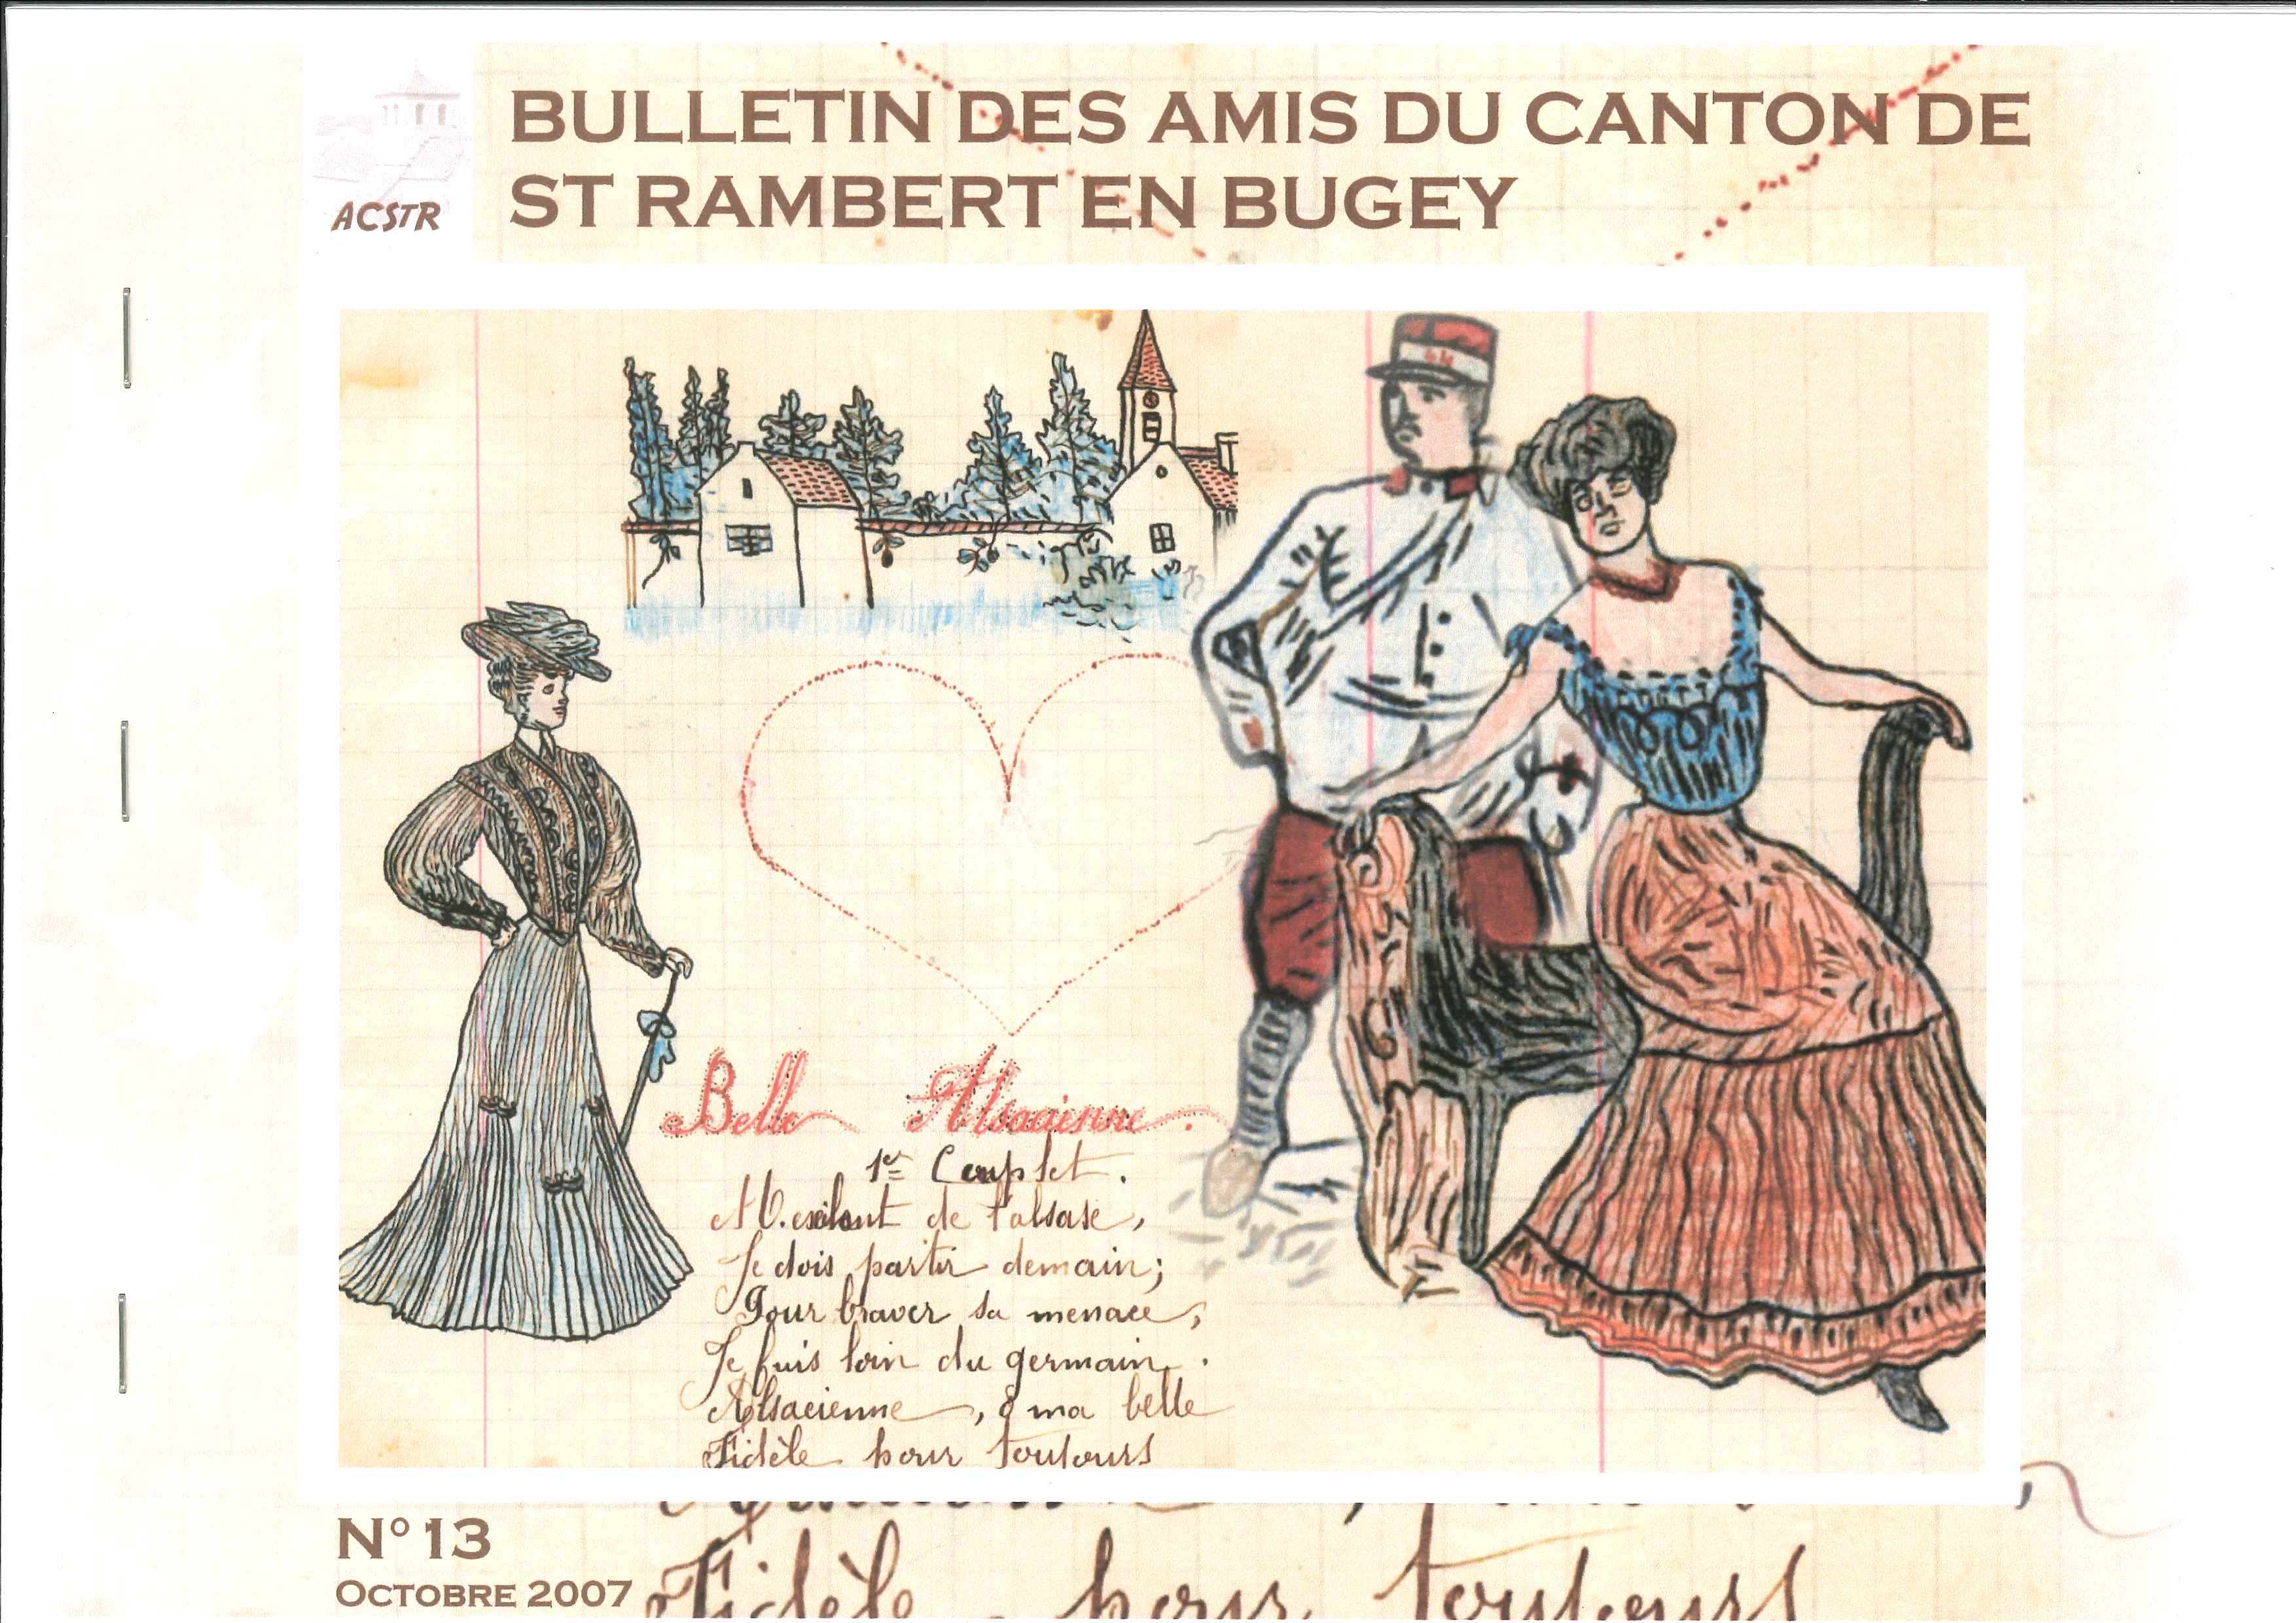 BULLETIN DES AMIS DU CANTON DE
ST RAMBERT EN BUGEY
ACSTR
44
Belle Alsacienne.
1er Couplet.
M.exilant de l'alsase,
Je dois partir demain;
Pour braver sa menace,
Je fuis loin du germain.
Alsacienne, ô ma belle
Fidèle pour toujours
N° 13
OCTOBRE 2007
Fidèle pour toujours